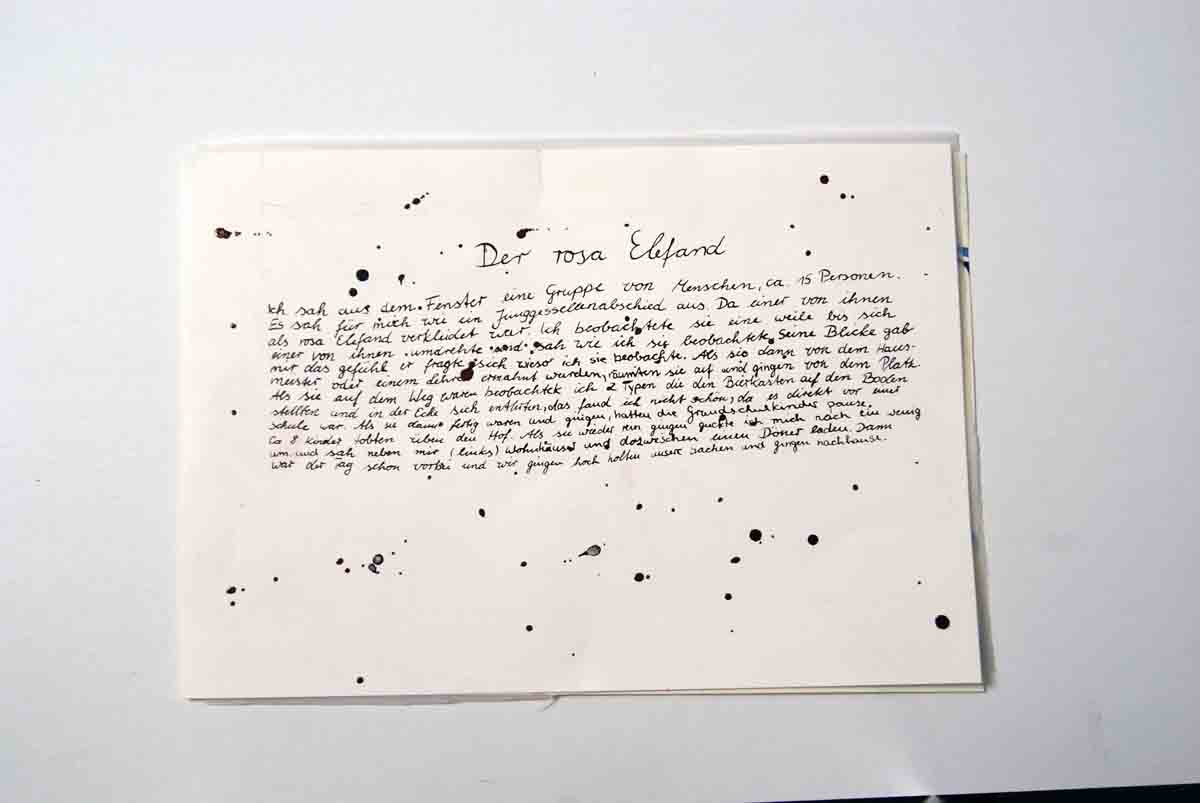 Der rosa Elefand
Ich sah aus dem Fenster eine Gruppe von Menschen, ca. 15 Personen.
Es sah für mich wie ein Junggessellenabschied aus. Da einer von ihnen
als rosa Elefand verkleidet war. Ich beobachtete sie eine weile bis sich
einer von ihnen umdrehte und sah wie ich sie beobachtete. Seine Blicke gab
mir das gefühl er fragte sich wieso ich sie beobachte. Als sie dann von dem Haus-
meister oder einem Lehrer ermahnt wurden, räumten sie auf und gingen von dem Platz.
Als sie auf dem Weg waren beobachtete ich 2 Typen die den Bierkasten auf den Boden
stellten und in der Ecke sich entlerten, das fand ich nicht schön, da es direkt vor einer
schule war. Als sie dann fertig waren und gingen, hatten die Grundschulkinder pause.
Ca 8 kinder tobten über den Hof. Als sie wieder rein gingen guckte ich mich noch ein wenig
um und sah neben mir (links) Wohnhäuser und dazwischen einen Döner laden. Dann
war der Tag schon vorbei und wir gingen hoch holten unsere sachen und gingen nachhause.